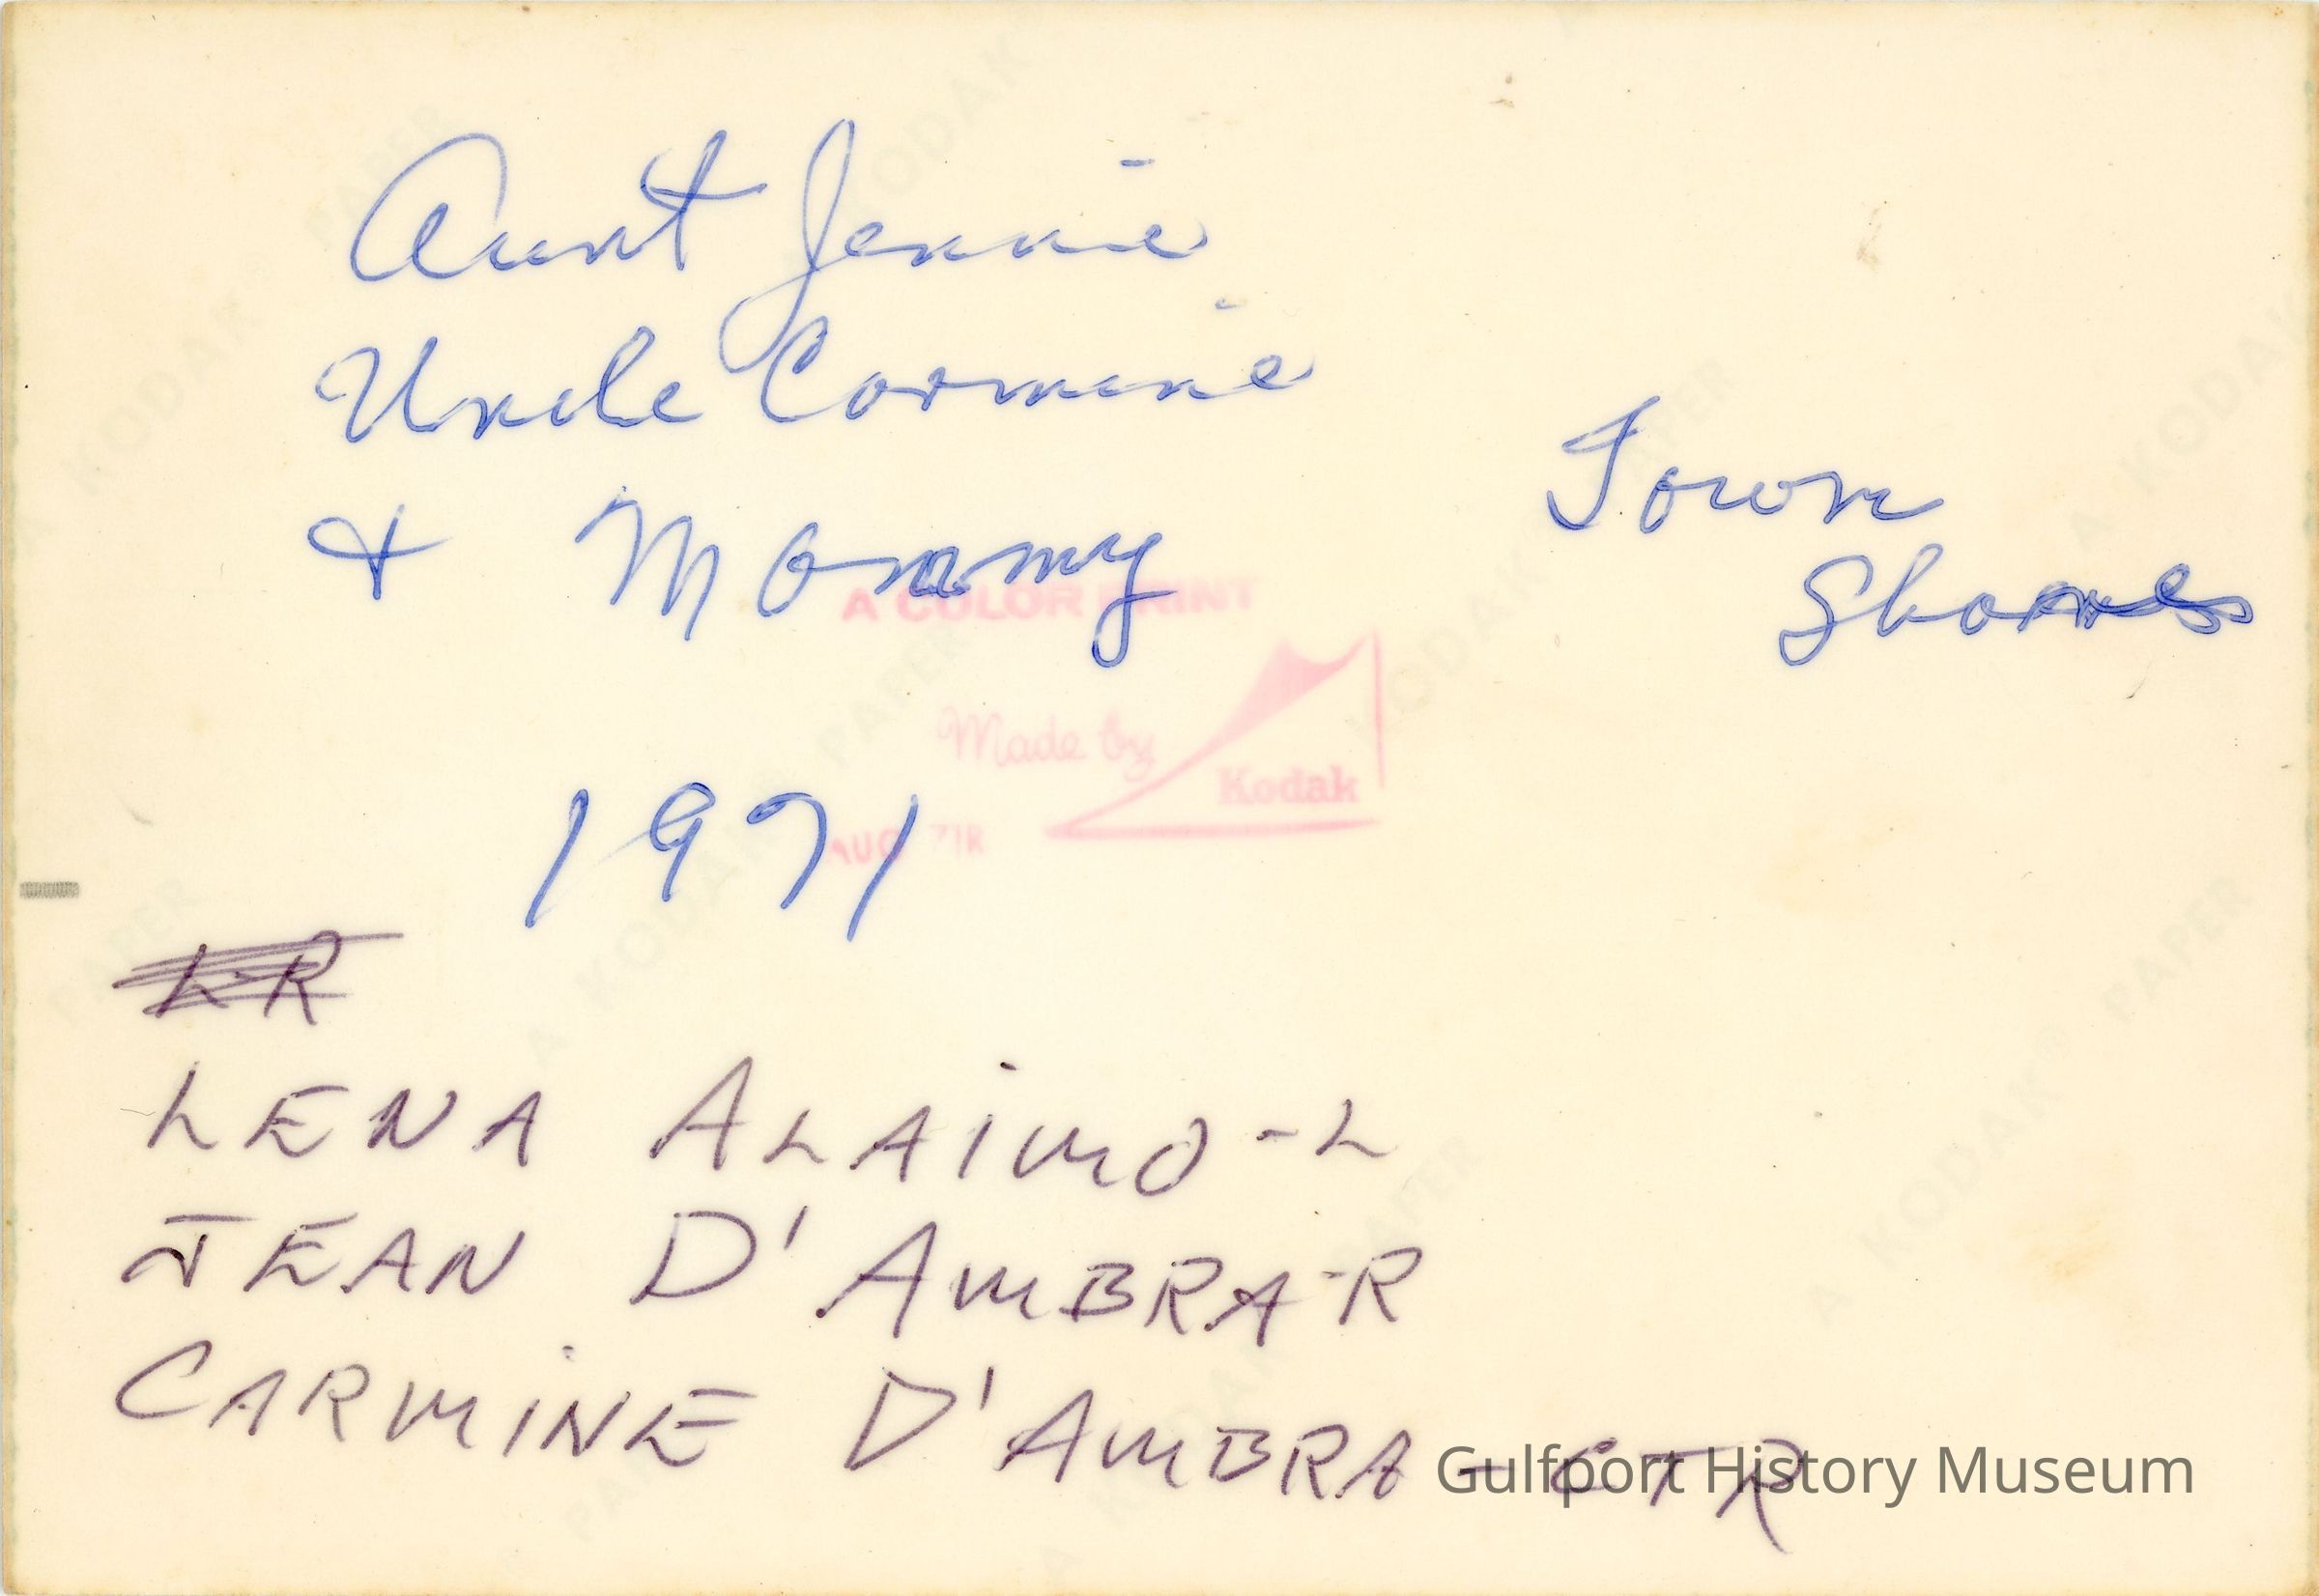 Aunt Jennie
Uncle Carmine
& Mommy
Town
Shores
A COLOR PRINT
Made by
Kodak
1971
AUG 71R
LR
LENA ALAIMO-L
JEAN D'AMBRA-R
CARMINE D'AMBRA-CTR
Gulfport History Museum
A KODAK PAPER